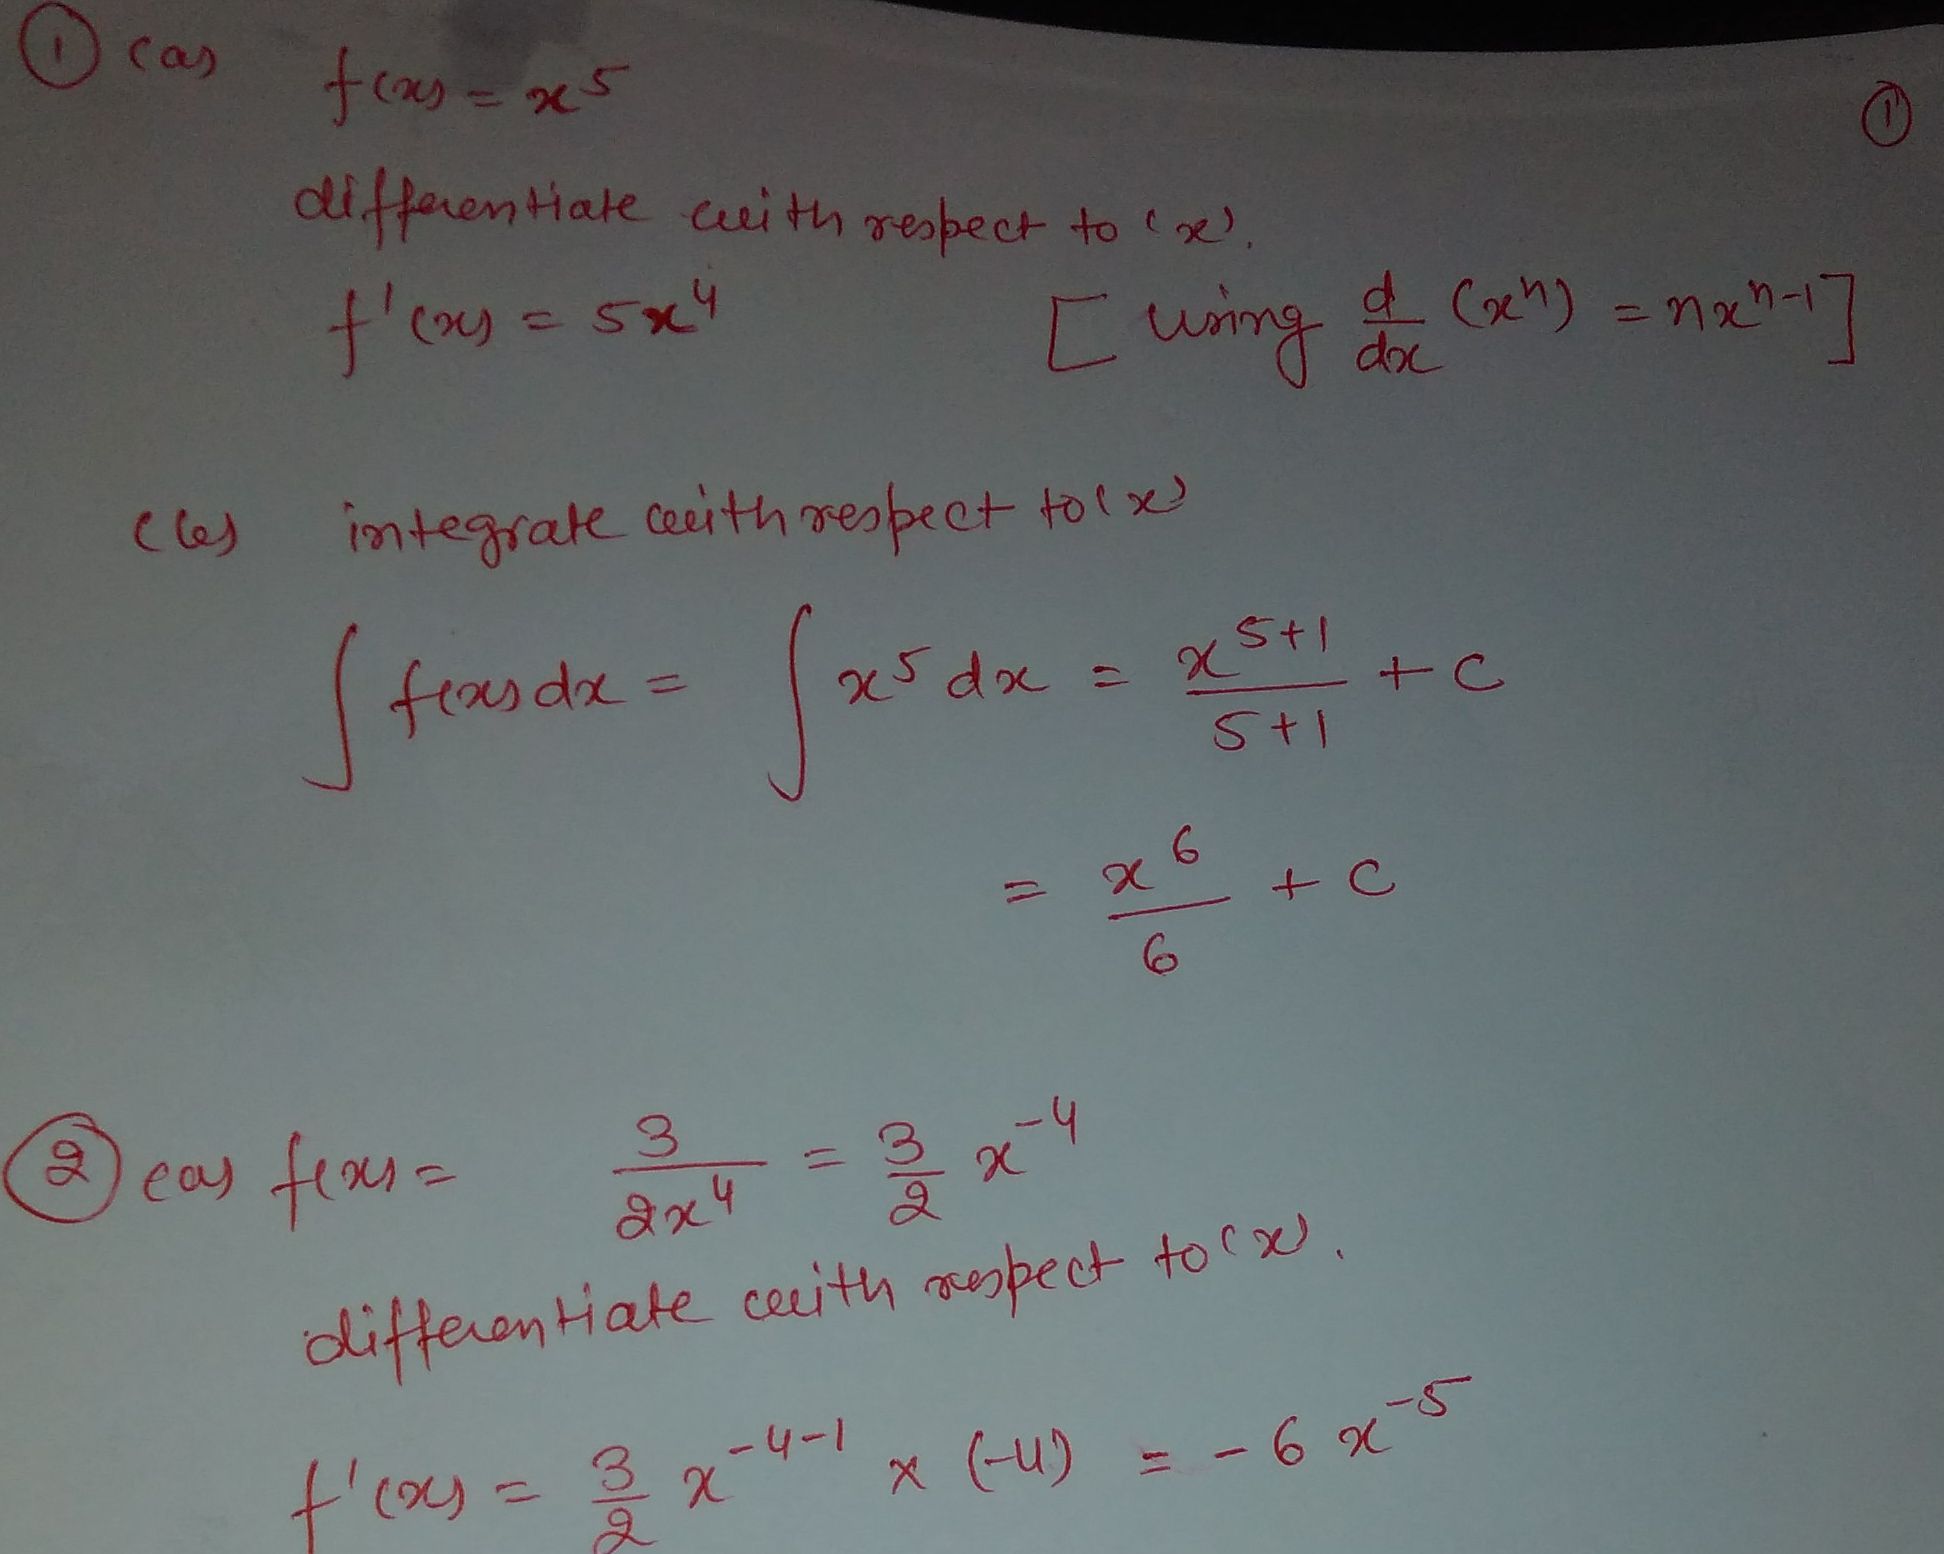 ① (a) f(x) = x⁵
①
differentiate with respect to (x).
f'(x) = 5x⁴ [using d/dx (xⁿ) = nxⁿ⁻¹]
(b) integrate with respect to (x)
∫ f(x) dx = ∫ x⁵ dx = x⁵⁺¹/5+1 + C
= x⁶/6 + C
② (a) f(x) = 3/2x⁴ = 3/2 x⁻⁴
differentiate with respect to (x).
f'(x) = 3/2 x⁻⁴⁻¹ × (-4) = -6 x⁻⁵